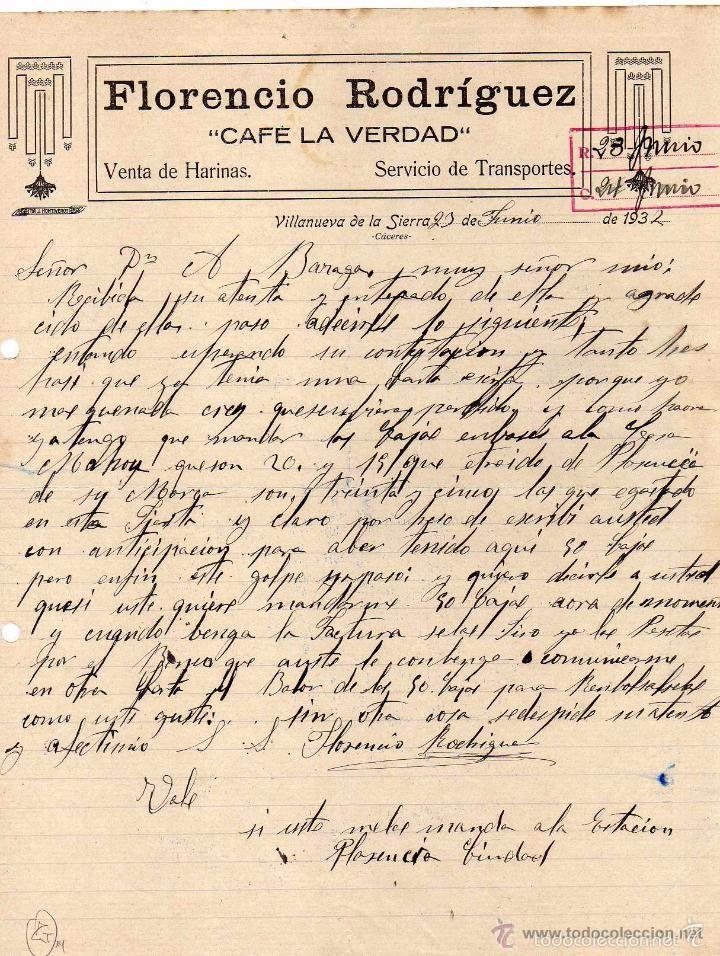 Florencio Rodríguez
"CAFE LA VERDAD"
Venta de Harinas. Servicio de Transportes.
R. 23 Junio
C. 24 Junio
Villanueva de la Sierra 23 de Junio de 1932
-Cáceres-
Señor Dn A Baraga, muy señor mio:
Recibida su atenta y enterado de ella y agrade
cido de ella. paso adecirle lo siguiente,
estando esperando su contestacion y tanto
que ya tenia una carta escrita porque yo
crey queseubieran perdido y como
que mandar las Cajas enbases ala
que son 20. y 15 que etraido de Plasencia
de sy Marga son, treinta y cinco las que egastado
en esta Fiesta y claro por heso de escribi austed
con anticipacion para aber tenido aqui 50 Cajas
pero enfin este golpe yapasoi y quiero dicirle a usted
quesi uste quiere mandarme 50 Cajas aora de momen
y cuando benga la Factura selas Jiro yo las Pesetas
por el Banco que auste le conbenga o comunicarme
en otra Carta el Balor de las 50 Cajas para Renbolsarselas
como uste guste. sin otra cosa sedespide su atento
y afectisimo S. S. Florencio Rodriguez
Vale
si uste melas manda ala Estacion
Plasencia Ciudad
www.todocoleccion.net